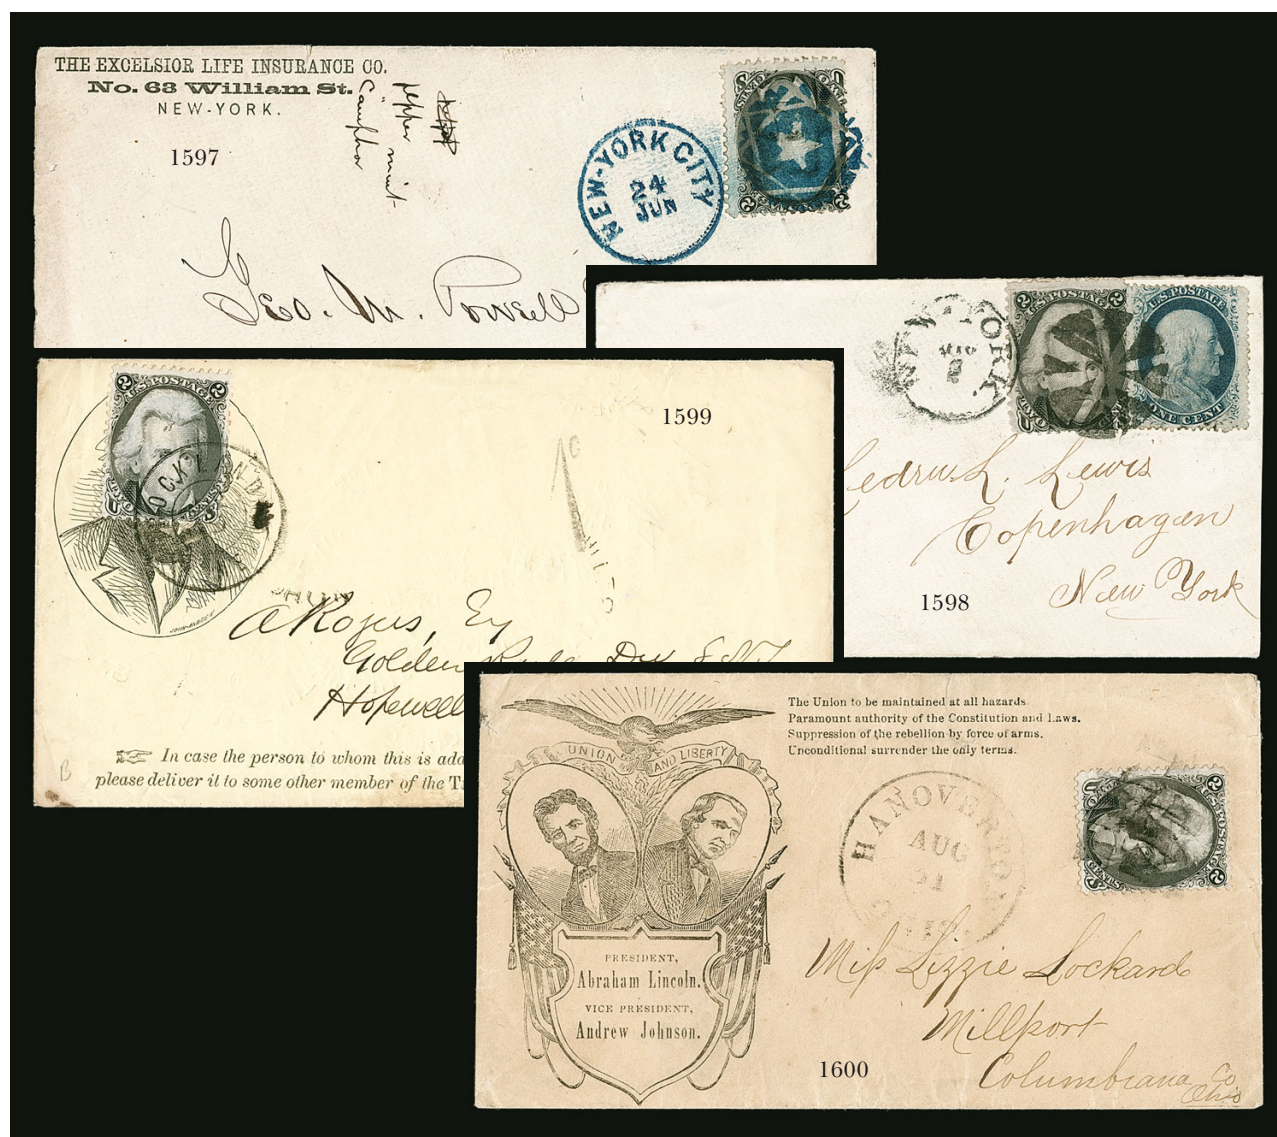 THE EXCELSIOR LIFE INSURANCE CO.
No. 63 William St.
NEW-YORK.
Camphor
pepper mint
1597
NEW-YORK CITY
24
JUN
Geo. M. Powell
U.S. POSTAGE
NEW-YORK.
2
U.S. POSTAGE
ONE CENT
Lewis
Copenhagen
New York
1598
U.S. POSTAGE
1599
A Rogers, Esq
Golden Rule Div
Hopewell
In case the person to whom this is add
please deliver it to some other member of the T
The Union to be maintained at all hazards.
Paramount authority of the Constitution and Laws.
Suppression of the rebellion by force of arms.
Unconditional surrender the only terms.
UNION AND LIBERTY
PRESIDENT,
Abraham Lincoln.
VICE PRESIDENT,
Andrew Johnson.
HANOVERTON
AUG
U.S. POSTAGE
Miss Lizzie Lockard
Millport
Columbiana Co
Ohio
1600